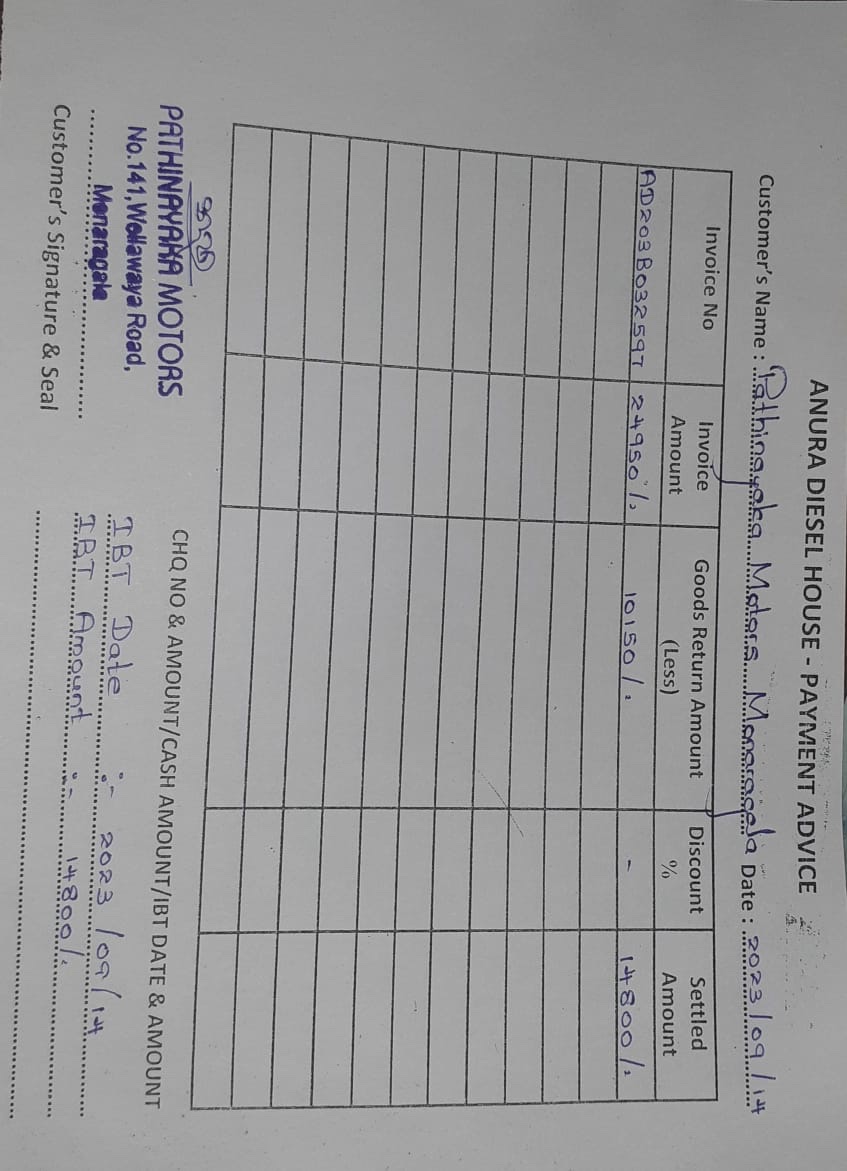 ANURA DIESEL HOUSE - PAYMENT ADVICE
Customer's Name : Pathinayaka Motors Monaragala Date : 2023/09/14
Invoice No Invoice Amount Goods Return Amount (Less) Discount % Settled Amount
AD203B032597 24950/. 10150/. - 14800/.
PATHINAYAKA MOTORS
No.141,Wellawaya Road,
Monaragala
Customer's Signature & Seal
CHQ NO & AMOUNT/CASH AMOUNT/IBT DATE & AMOUNT
IBT Date :- 2023/09/14
IBT Amount :- 14800/.